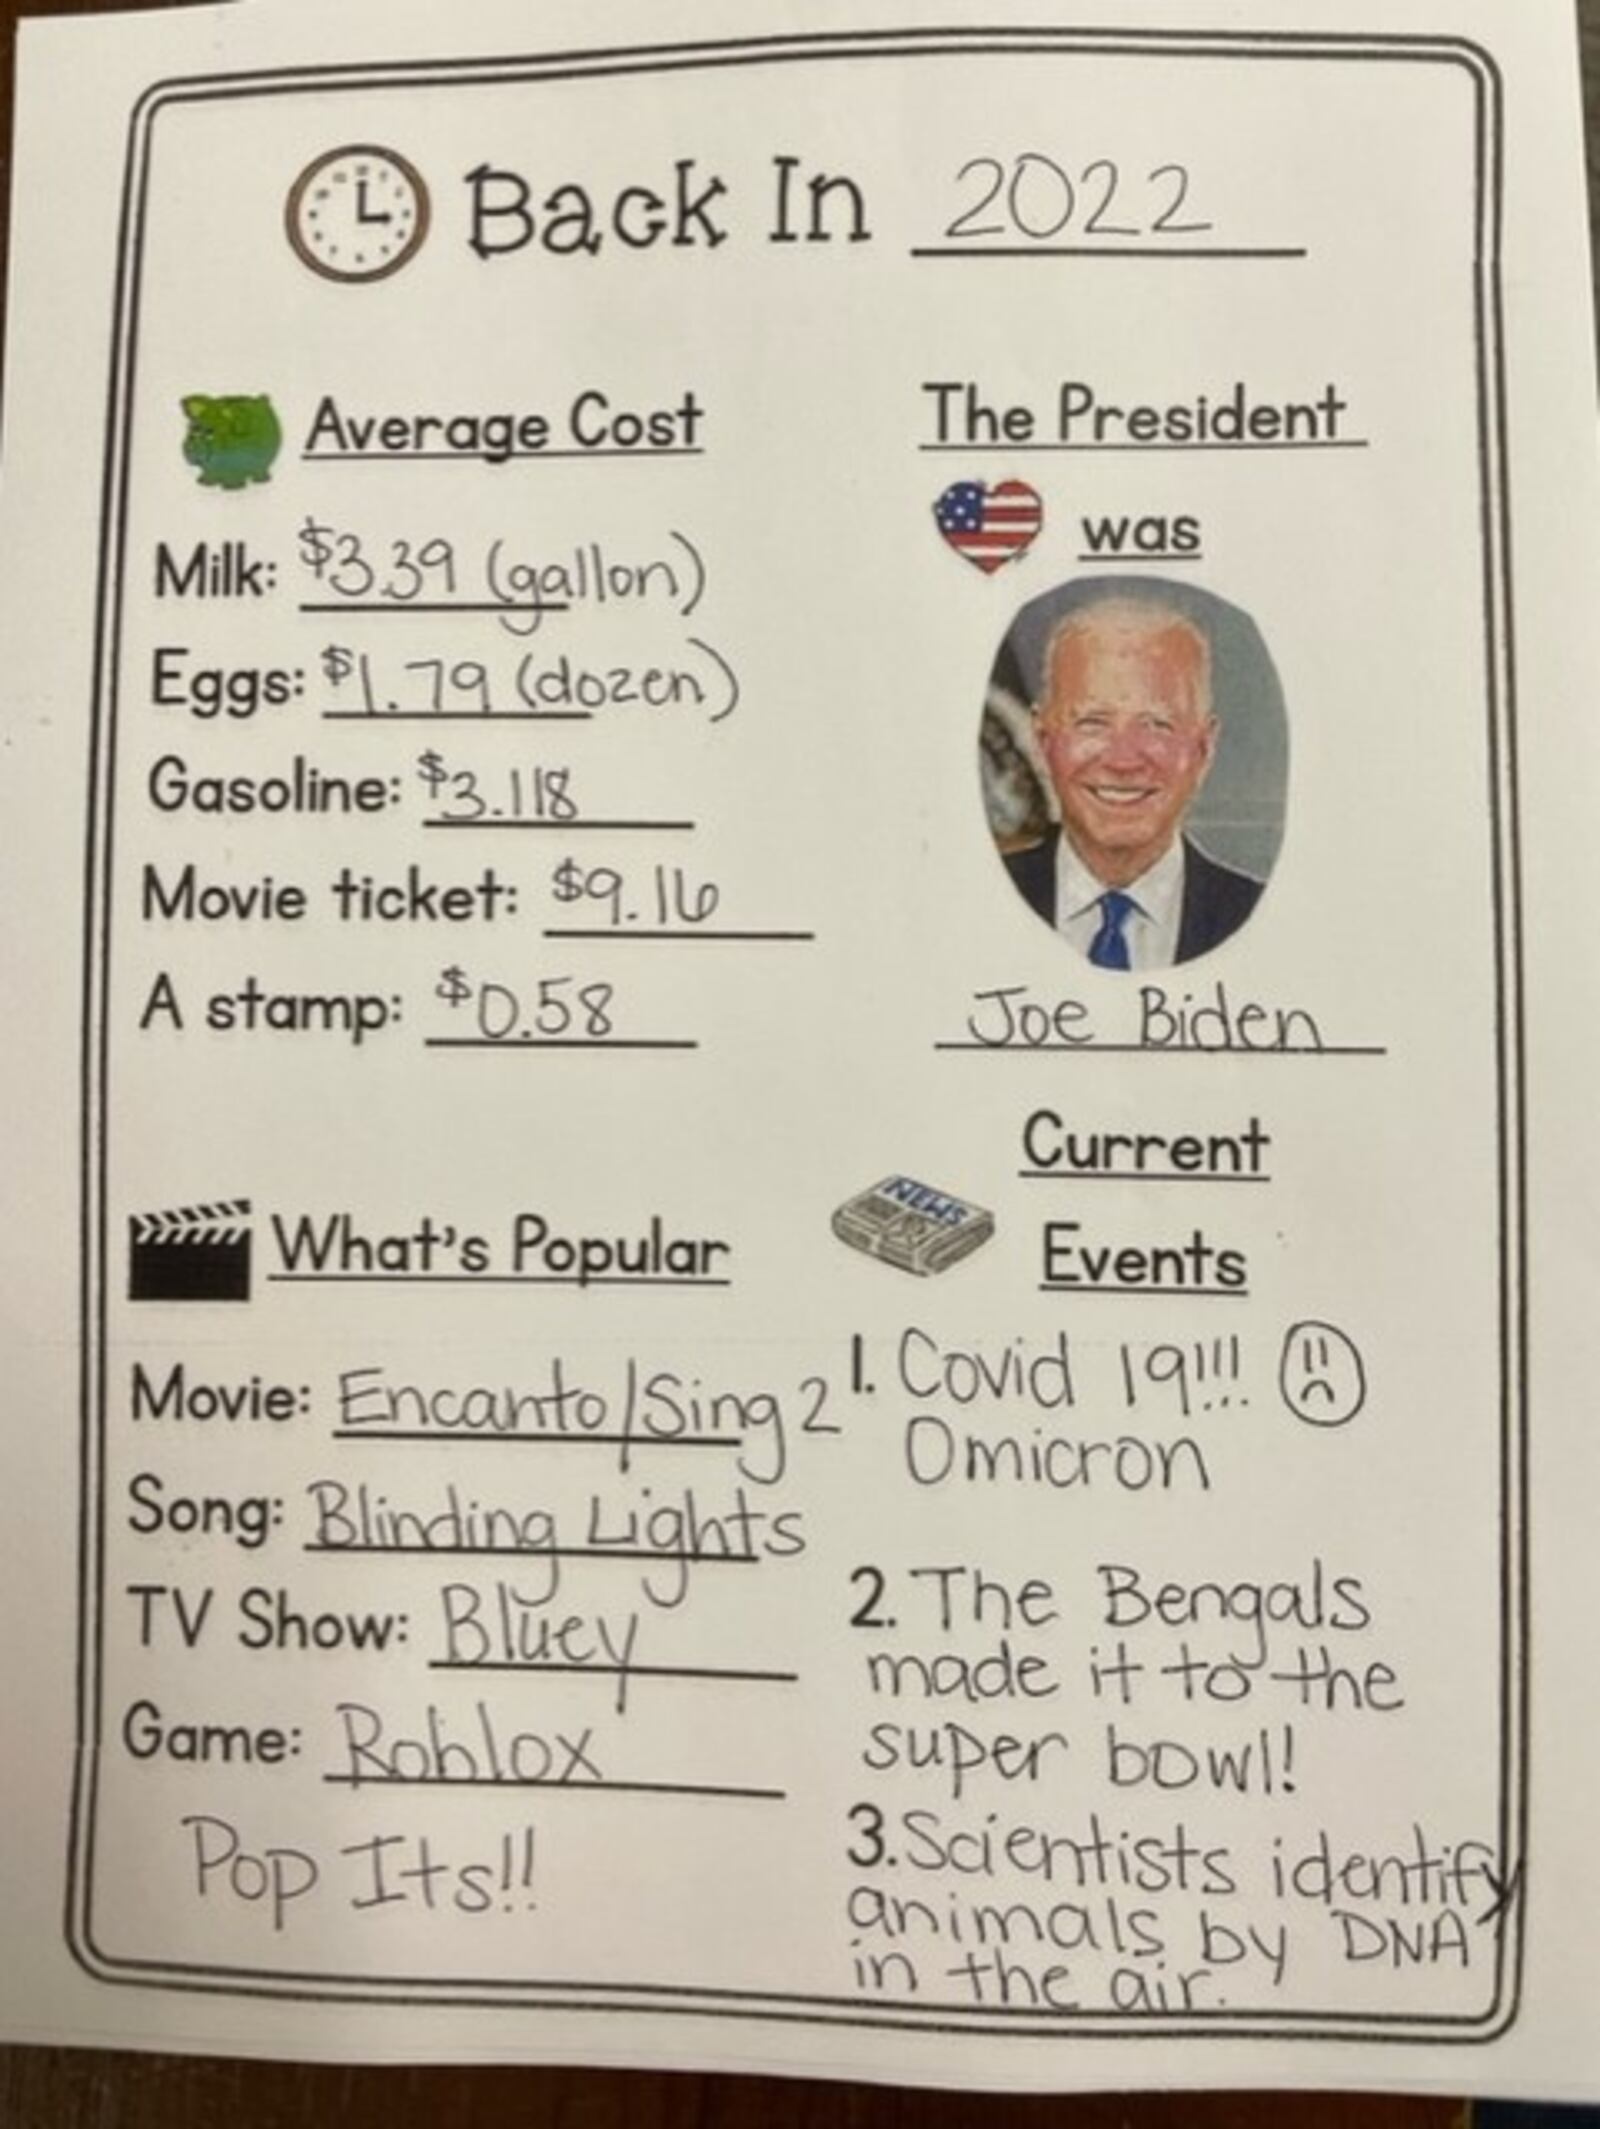 Back In 2022
Average Cost
Milk: $3.39 (gallon)
Eggs: $1.79 (dozen)
Gasoline: $3.118
Movie ticket: $9.16
A stamp: $0.58
The President
was
Joe Biden
What's Popular
Movie: Encanto/Sing 2
Song: Blinding Lights
TV Show: Bluey
Game: Roblox
Pop Its!!
Current
NEWS
Events
1. Covid 19!!!
Omicron
2. The Bengals
made it to the
super bowl!
3. Scientists identify
animals by DNA
in the air.